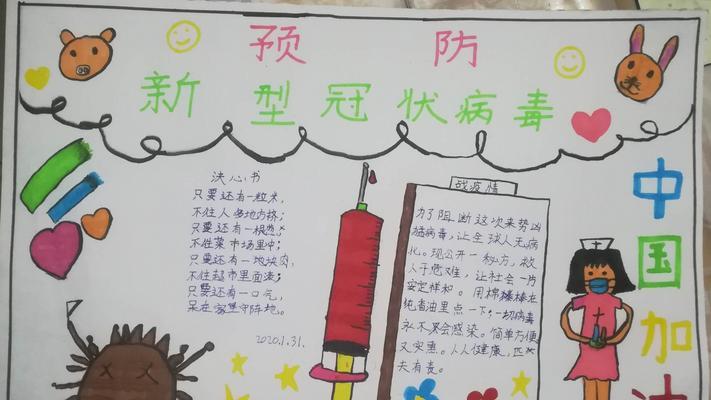 预 防
新型冠状病毒
决心书
只要还有一粒米,
不往人多地方挤;
只要还有一根葱,
不往菜市场里冲;
只要还有一地块肉,
不往超市里面凑;
只要还有一口气,
呆在家里守阵地。
2020.1.31.
战疫情
为了阻断这次来势凶
猛病毒,让全球人无病
化。现公开一秒方,救
人于危难,让社会一片
安定祥和。用棉棒在
纯香油里点一下,一切病毒
永不会感染。简单方便
又实惠。人人健康,匹
夫有责。
中国加油